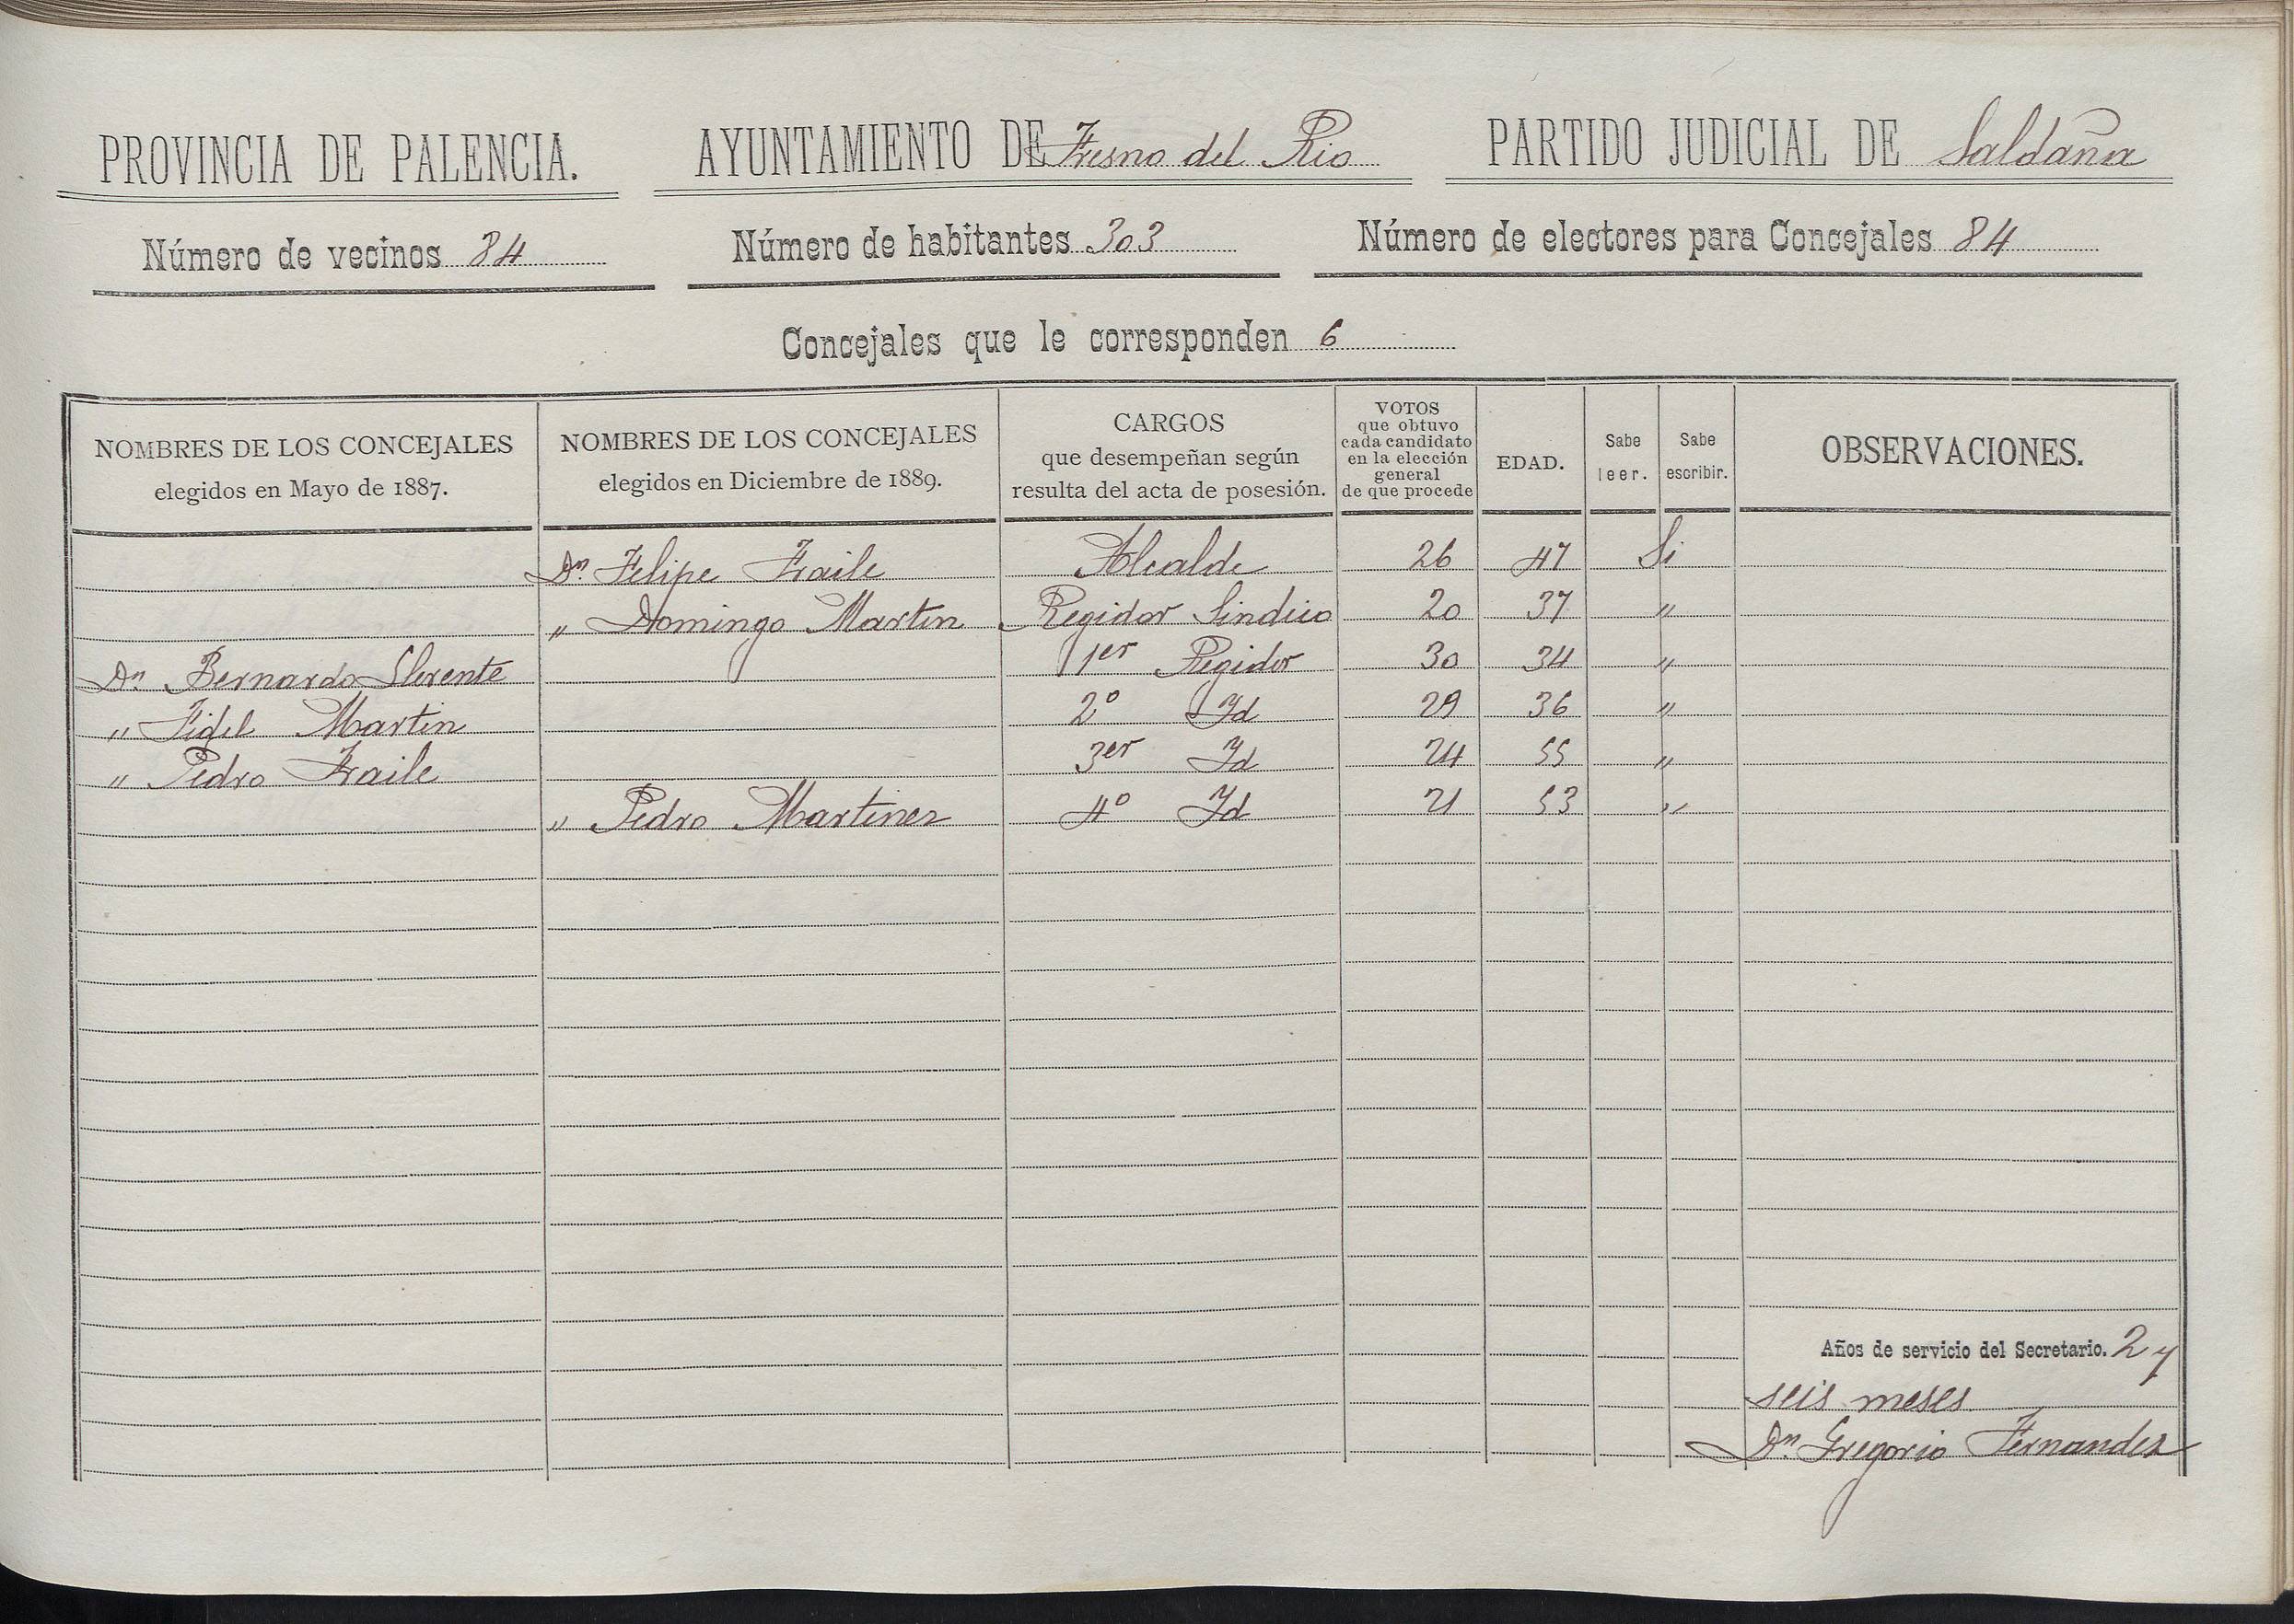 PROVINCIA DE PALENCIA. AYUNTAMIENTO DE Fresno del Rio PARTIDO JUDICIAL DE Saldaña
Número de vecinos 84 Número de habitantes 303 Número de electores para Concejales 84
Concejales que le corresponden 6
NOMBRES DE LOS CONCEJALES
elegidos en Mayo de 1887.
NOMBRES DE LOS CONCEJALES
elegidos en Diciembre de 1889.
CARGOS
que desempeñan según
resulta del acta de posesión.
VOTOS
que obtuvo
cada candidato
en la elección
general
de que procede
EDAD.
Sabe
leer.
Sabe
escribir.
OBSERVACIONES.
Dn. Felipe Fraile Alcalde 26 47 Si
" Domingo Martin Regidor Sindico 20 37 "
Dn Bernardo Llorente 1er Regidor 30 34 "
" Fidel Martin 2º Id 29 36 "
" Pedro Fraile 3er Id 24 55 "
" Pedro Martinez 4º Id 21 53 "
Años de servicio del Secretario. 2 y
seis meses
Dn Gregorio Fernandez